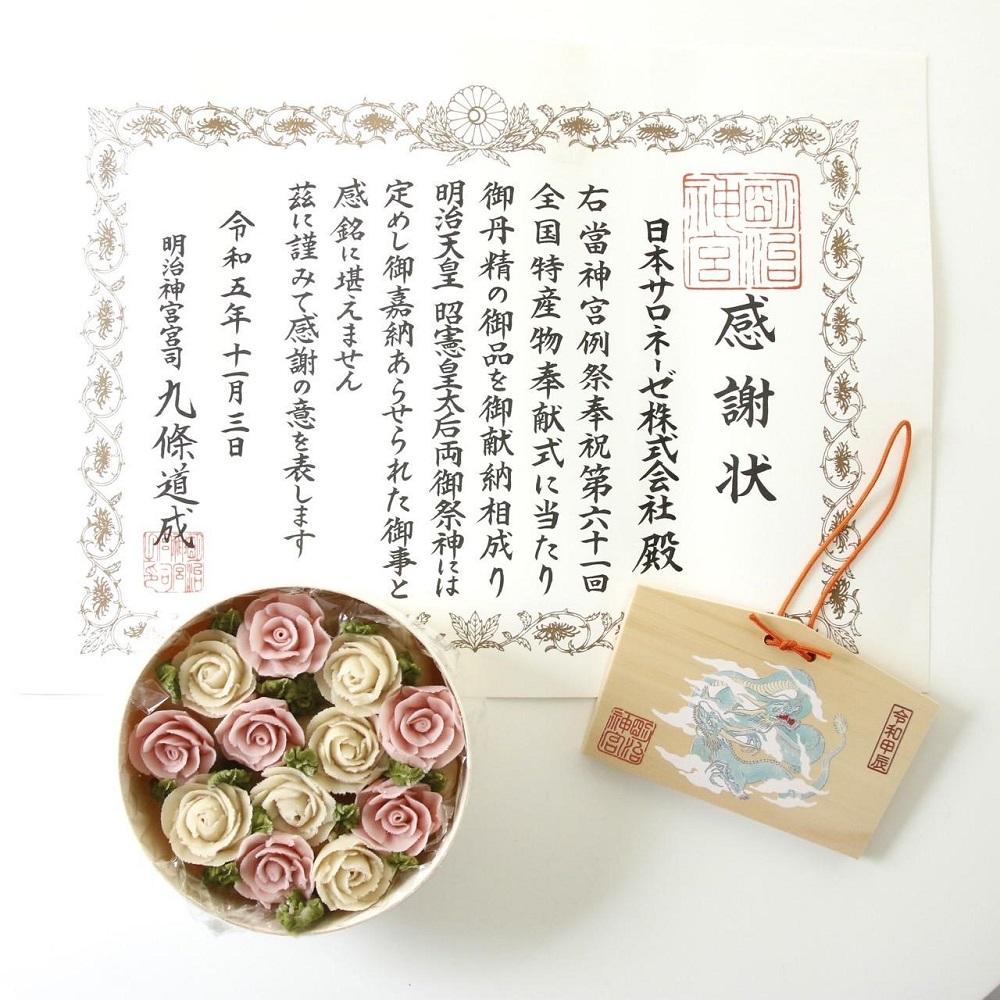 明治神宮
感謝状
日本サロネーゼ株式会社 殿
右當神宮例祭奉祝第六十一回
全国特産物奉献式に当たり
御丹精の御品を御献納相成り
明治天皇 昭憲皇太后両御祭神には
定めし御嘉納あらせられた御事と
感銘に堪えません
茲に謹みて感謝の意を表します
令和五年十一月三日
明治神宮宮司 九條道成
明治神宮宮司之印
令和甲辰
明治神宮